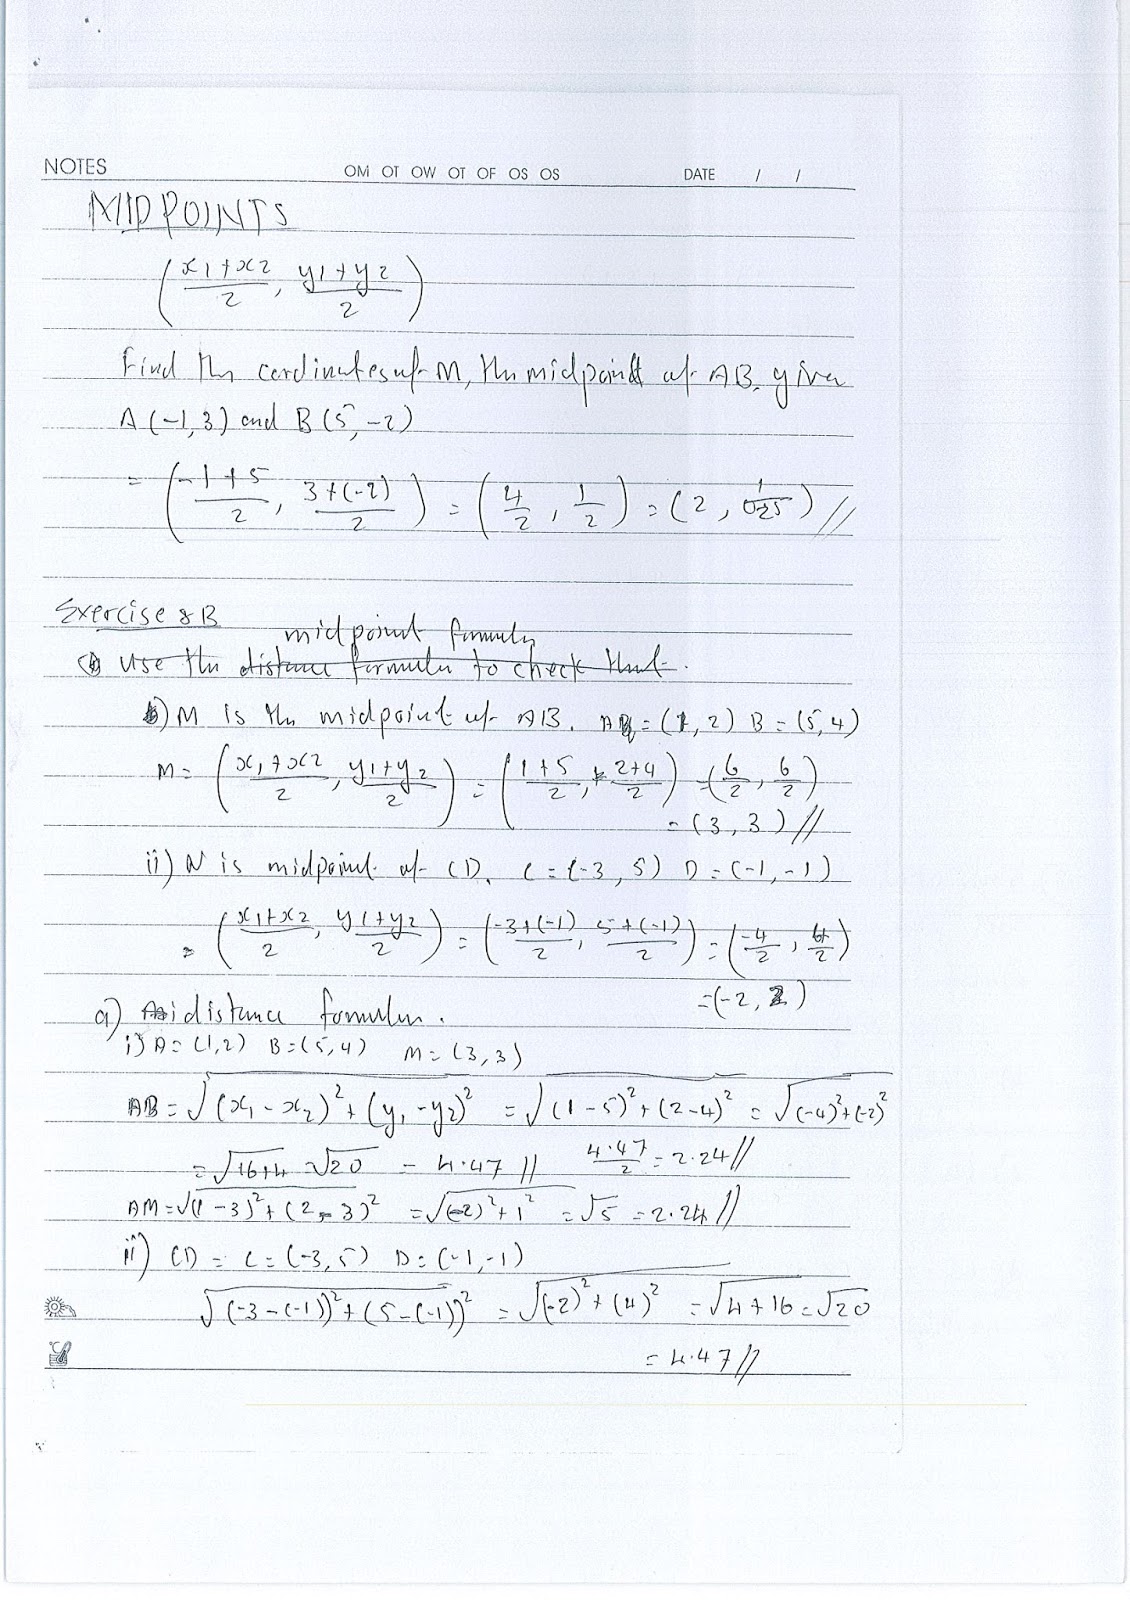 NOTES OM OT OW OT OF OS OS DATE / /
MIDPOINTS
(x1+x2/2, y1+y2/2)
Find the cordinates of M, the midpoint of AB, given
A(-1,3) and B(5,-2)
= (-1+5/2, 3+(-2)/2) = (4/2, 1/2) = (2, ) //
Exercise 8B
midpoint formula
Use the distance formula to check that.
M is the midpoint of AB. A = (1, 2) B = (5, 4)
M = (x1+x2/2, y1+y2/2) = (1+5/2, 2+4/2) = (6/2, 6/2)
= (3, 3) //
ii) N is midpoint of CD. C = (-3, 5) D = (-1, -1)
= (x1+x2/2, y1+y2/2) = (-3+(-1)/2, 5+(-1)/2) = (-4/2, 4/2)
= (-2, 2)
a) distance formula.
i) A = (1,2) B = (5,4) M = (3,3)
AB = √(x1 - x2)² + (y1 - y2)² = √(1-5)² + (2-4)² = √(-4)² + (-2)²
= √16+4 = √20 = 4.47 // 4.47/2 = 2.24 //
AM = √(1-3)² + (2-3)² = √(-2)² + 1² = √5 = 2.24 //
ii) CD = C = (-3, 5) D = (-1, -1)
√(-3-(-1))² + (5-(-1))² = √(-2)² + (4)² = √4+16 = √20
= 4.47 //